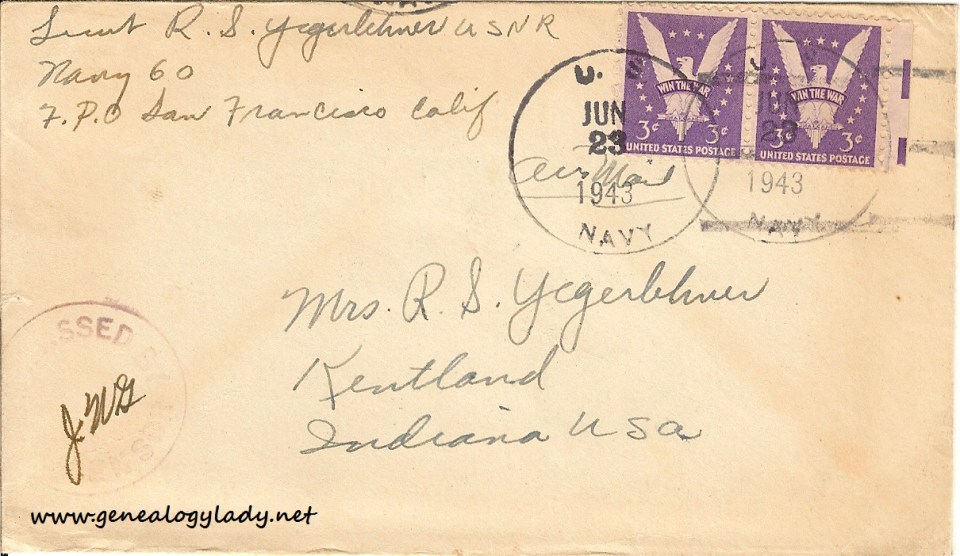 Lieut R. S. Yegerlehner USNR
Navy 60
F.P.O San Francisco Calif
WIN THE WAR
3¢ 3¢
UNITED STATES POSTAGE
WIN THE WAR
3¢ 3¢
UNITED STATES POSTAGE
U. S.
JUN
23
1943
NAVY
U.
JUN
23
1943
NAVY
Air Mail
Mrs. R. S. Yegerlehner
Kentland
Indiana USA
PASSED
J.W.G
www.genealogylady.net